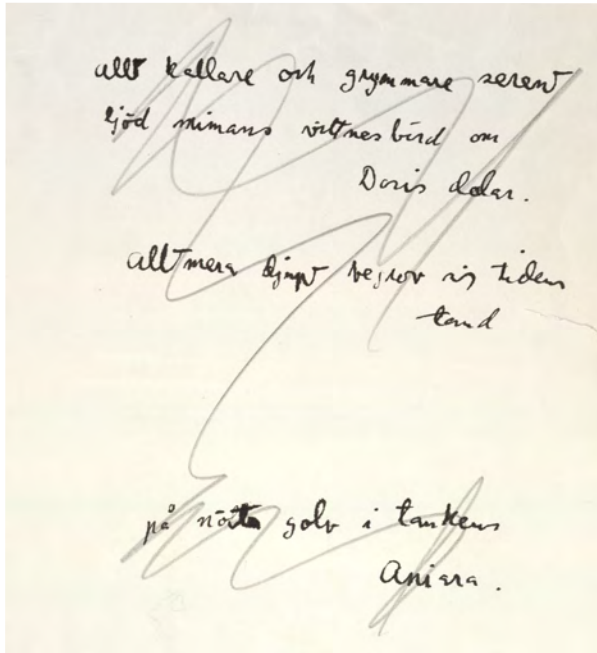 allt kallare och grymmare seren
ljöd mimans vittnesbörd om
Doris dalar.
allt mera djupt begrov sig tidens
tand
på nötta golv i tankens
Aniara.